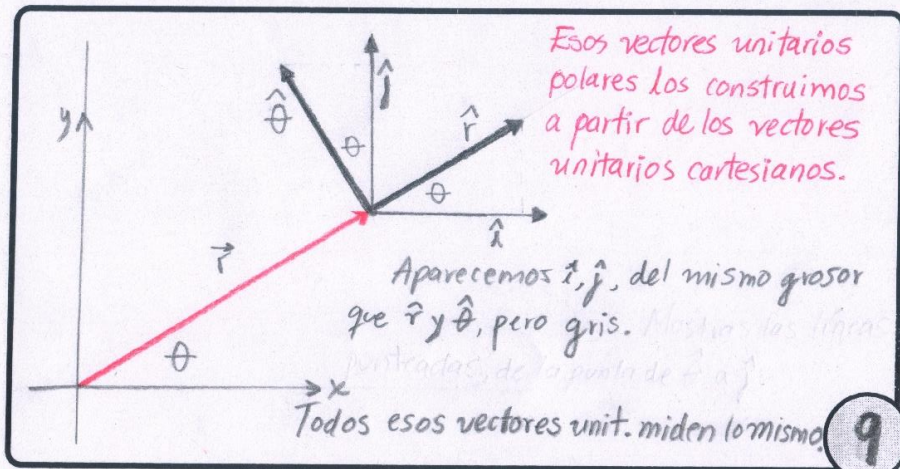 Esos vectores unitarios
polares los construimos
a partir de los vectores
unitarios cartesianos.
y
ĵ
θ̂
θ
r̂
θ
î
r⃗
Aparecemos î, ĵ, del mismo grosor
que r̂ y θ̂, pero gris. Mostrar las líneas
punteadas, de la punta de r̂ a ĵ.
θ
x
Todos esos vectores unit. miden lo mismo.
9